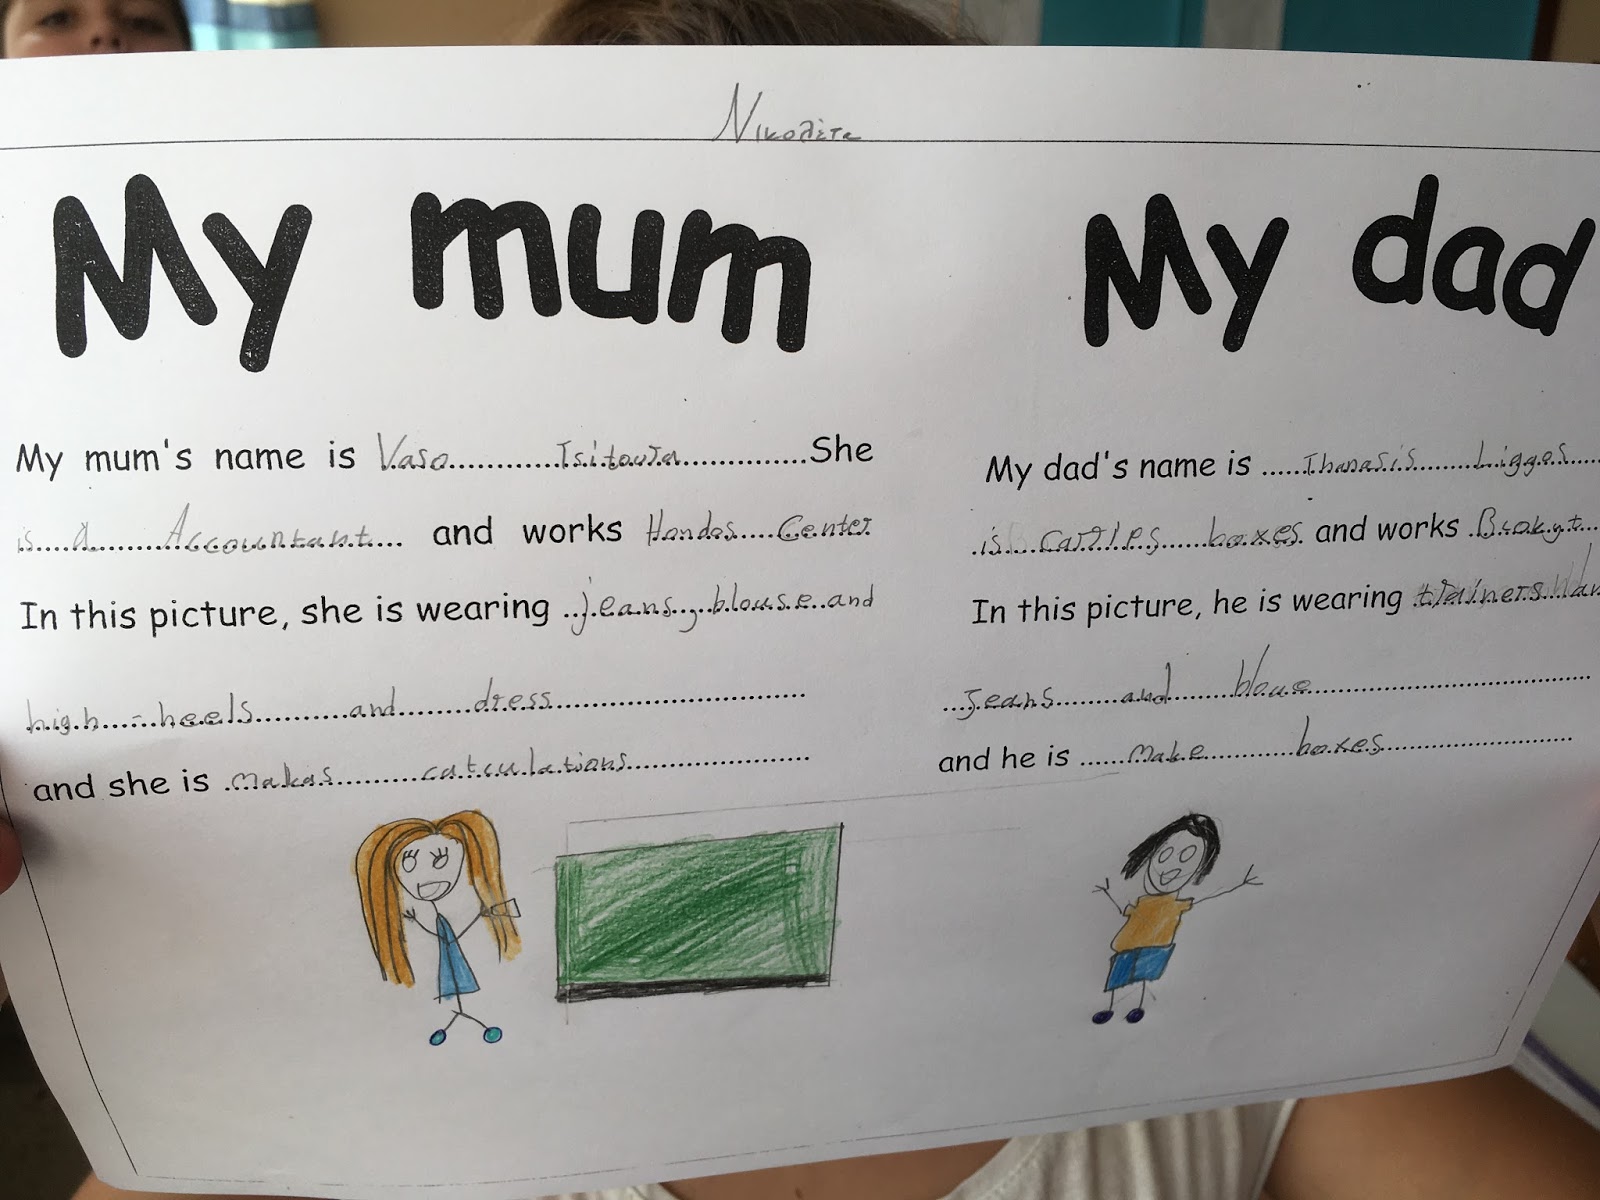 Νικολέτα
My mum
My mum's name is Vaso Tsitoura She
is a Accountant and works Hondos Center
In this picture, she is wearing jeans, blouse and
high-heels and dress
and she is makas catculations
My dad
My dad's name is Thanasis Ligges
is carries boxes and works
In this picture, he is wearing trainers
jeans and bloue
and he is make boxes